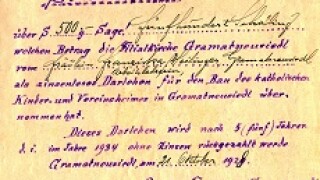 über S. 500.- Sage: fünfhundert Schilling
welchen Betrag die Filialkirche Gramatneusiedl
vom Fräulein Franziska Gramatneusiedl
als zinsenloses Darlehen für den Bau des katholischen
Kinder- und Vereinsheimes in Gramatneusiedl über-
nommen hat.
Dieses Darlehen wird nach 5 (fünf) Jahren
d.i. im Jahre 1934 ohne Zinsen rückgezahlt werde
Gramatneusiedl, am 21. Oktober 1928.